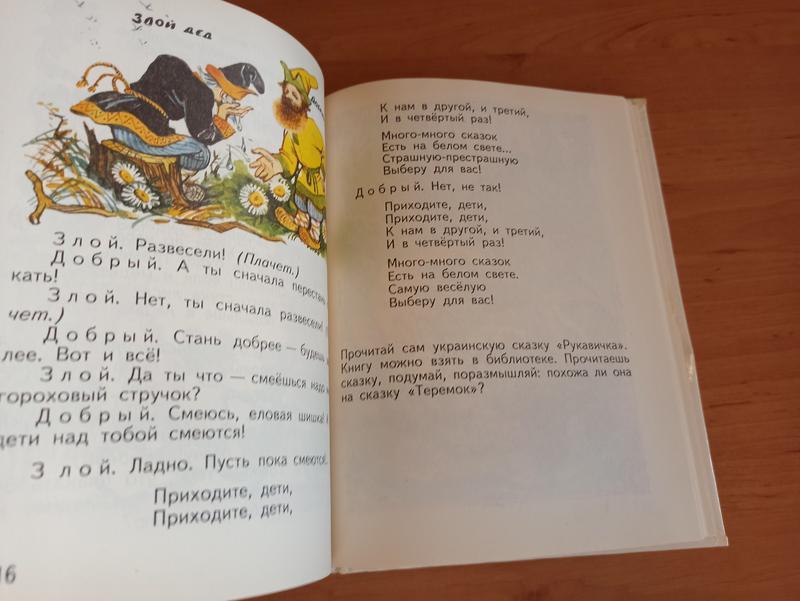 Злой дед
Злой. Развесели! (Плачет.)
Добрый. А ты сначала перестань
кать!
Злой. Нет, ты сначала развесели!
чет.)
Добрый. Стань добрее — будешь
лее. Вот и всё!
Злой. Да ты что — смеёшься надо
гороховый стручок?
Добрый. Смеюсь, еловая шишка!
дети над тобой смеются!
Злой. Ладно. Пусть пока смеются.
Приходите, дети,
Приходите, дети,
16
К нам в другой, и третий,
И в четвёртый раз!
Много-много сказок
Есть на белом свете...
Страшную-престрашную
Выберу для вас!
Добрый. Нет, не так!
Приходите, дети,
Приходите, дети,
К нам в другой, и третий,
И в четвёртый раз!
Много-много сказок
Есть на белом свете.
Самую весёлую
Выберу для вас!
Прочитай сам украинскую сказку «Рукавичка».
Книгу можно взять в библиотеке. Прочитаешь
сказку, подумай, поразмышляй: похожа ли она
на сказку «Теремок»?